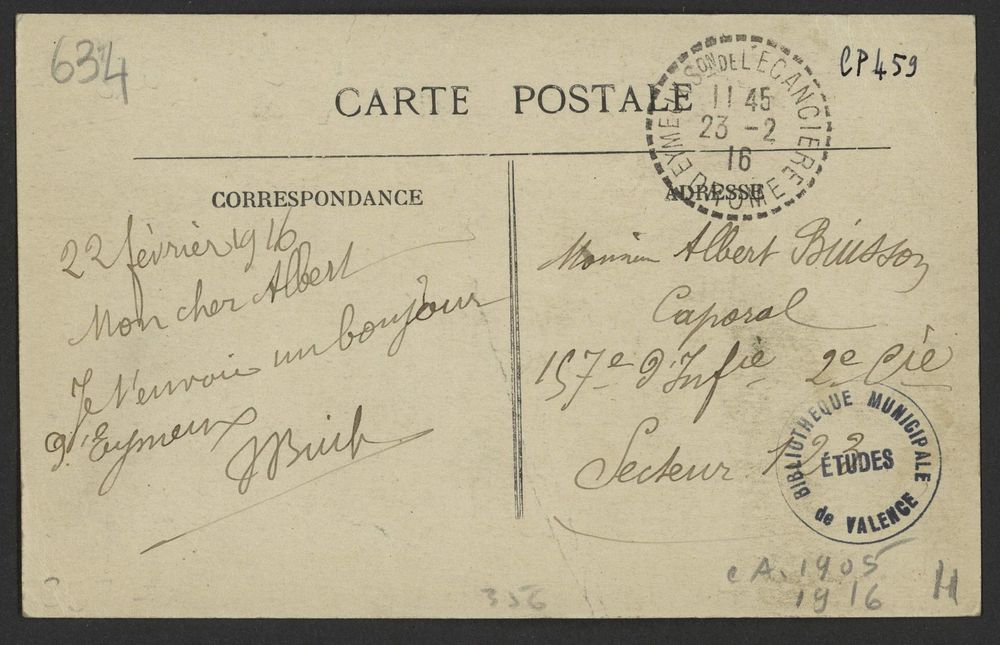 634
CP459
CARTE POSTALE
EYMEUX Son DE L'ECANCIERE
11 45
23 -2
16
DROME
CORRESPONDANCE
22 février 1916
Mon cher Albert
Je t'envoie un bonjour
d'Eymeux
ADRESSE
Monsieur Albert Buisson
Caporal
157e d'Infie 2e Cie
Secteur 123
BIBLIOTHEQUE MUNICIPALE
ÉTUDES
de VALENCE
356
CA. 1905
1916
H